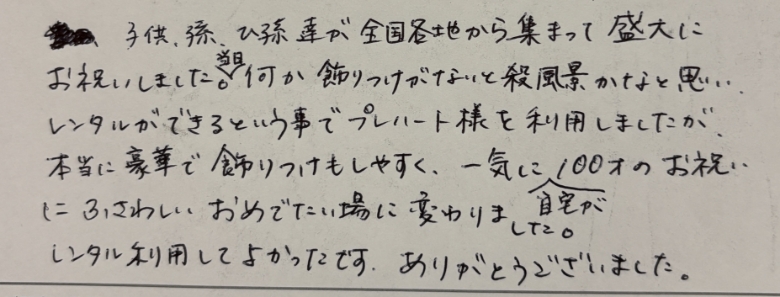 子供、孫、ひ孫達が全国各地から集まって盛大に
お祝いしました。当日何か飾りつけがないと殺風景かなと思い、
レンタルができるという事でプレハート様を利用しましたが、
本当に豪華で飾りつけもしやすく、一気に自宅が100才のお祝い
にふさわしいおめでたい場に変わりました。
レンタル利用してよかったです。ありがとうございました。